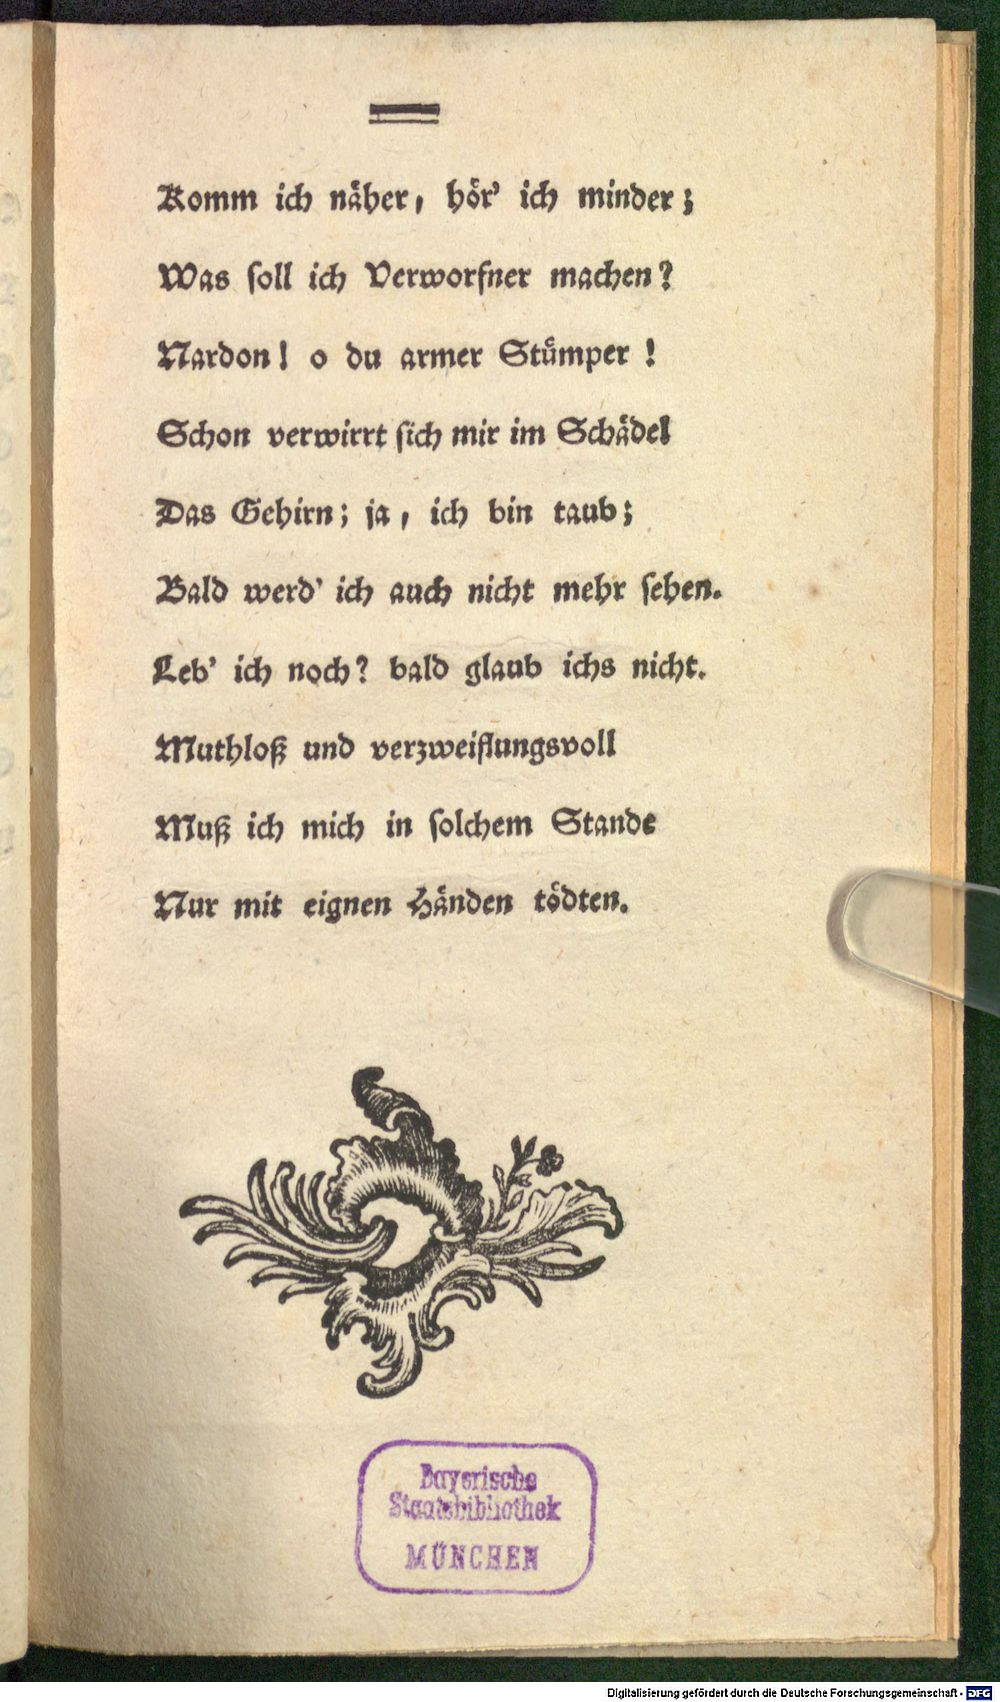 Komm ich näher, hör' ich minder;
Was soll ich Verworfner machen?
Nardon! o du armer Stümper!
Schon verwirrt sich mir im Schädel
Das Gehirn; ja, ich bin taub;
Bald werd' ich auch nicht mehr sehen.
Leb' ich noch? bald glaub ichs nicht.
Muthloß und verzweiflungsvoll
Muß ich mich in solchem Stande
Nur mit eignen Händen tödten.
Bayerische
Staatsbibliothek
MÜNCHEN
Digitalisierung gefördert durch die Deutsche Forschungsgemeinschaft - DFG